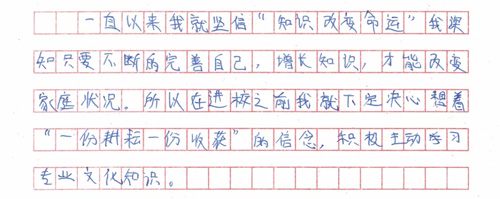 一直以来我就坚信“知识改变命运”我深
知只要不断的完善自己，增长知识，才能改变
家庭状况。所以在进校之前我就下定决心想着
“一份耕耘一份收获”的信念，积极主动学习
专业文化知识。